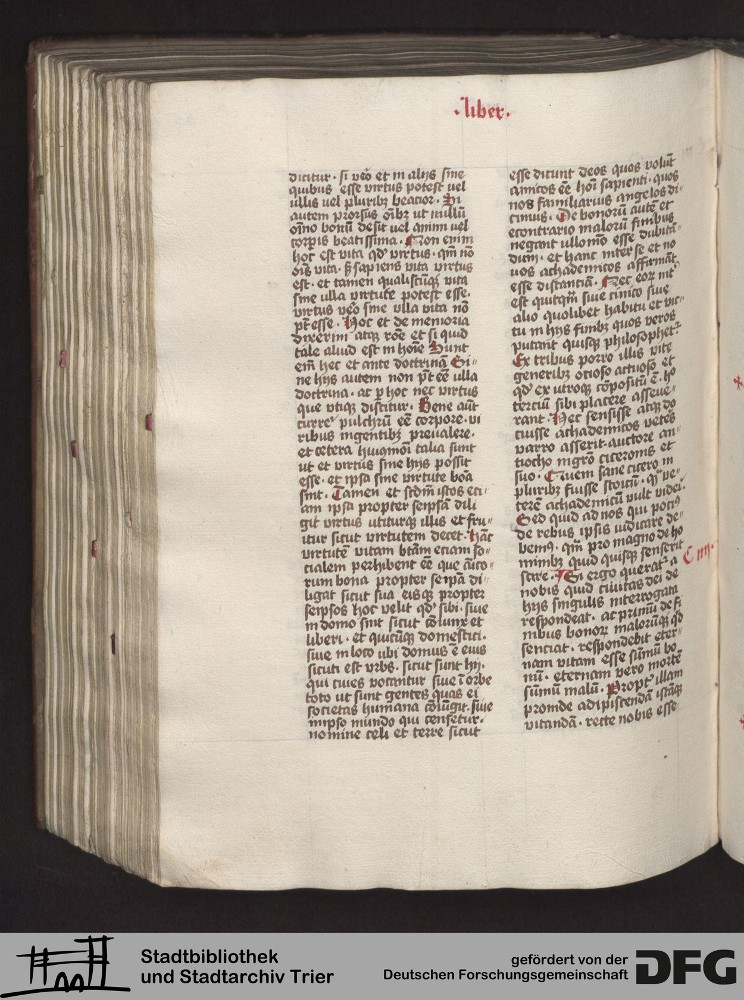 ·liber·
dicitur · si ve͛o et in alijs sine
quibus esse virtus potest vel
ullis vel pluribꝫ beacior · Si
autem prorsus om̄ibꝫ ut nullū
om̄ino bonū desit vel animi vel
corp̄is beatissima · Non enim
hoc est vita qd̓ virtus · qm̄ nō
om̄is vita · sꝫ sapiens vita virtus
est · et tamen qualiscūqꝫ vita
sine ulla virtute potest esse ·
virtus ve͛o sine ulla vita nō
pt̄ esse · Hoc et de memoria
dixerim atqꝫ rōe et si quid
tale aliud est in hoīe Sunt
em̄ hec et ante doctrinā Si-
ne hijs autem non pt̄ eē ulla
doctrina · ac ꝑ hoc nec virtus
que utiqꝫ discitur · Bene aūt
curre͛ pulchrū eē corpore · vi
ribus ingentibꝫ prevalere ·
et cetera huiꝰmōi talia sunt
ut et virtus sine hijs possit
esse · et ipsa sine virtute boā
sint · Tamen et scd̄m istos eci-
am ipsa propter seipsā dili
git virtus utiturqꝫ illis et fru-
itur sicut virtutem decet · Hāc
virtutē vitam btām eciam so-
cialem perhibent eē que am̄ico-
rum bona propter se ip̄a di-
ligat sicut sua eisqꝫ propter
seipsos hoc velit qd̓ sibi · sive
in domo sint sicut cōiunx et
liberi · et quicūqꝫ domestici ·
sive in loco ubi domus ē eius
sicuti est vrbs · sicut sunt hij ·
qui cives vocantur sive ī orbe
toto ut sunt gentes quas ei
societas humana cōiūgit · sive
in ipso mundo qui censetur ·
nomine celi et terre sicut
esse dicunt deos quos volūt
amicos eē hoī sapienti · quos
nos familiarius angelos di-
cimus · De bonorū autē et
econtrario malorū finibus
negant ullomō esse dubitā-
dum · et hanc inter se et no
vos achademicos affirmāt
esse distanciā · Nec eorꝫ int̓
est quitq̄m sive cinico sive
alio quolibet habitu et vic-
tu in hijs finibꝫ quos veros
putant quisqꝫ philosophet͛
Ex tribus porro illis vite
generibꝫ ocioso actuoso et
qd̓ ex utroqꝫ cōpositū ē · ho
terciū sibi placere asseve-
rant · Hec sensisse atqꝫ do
cuisse achademicos vetēs
varro asserit auctore an-
tiocho mgrō ciceronis et
suo · Quem sane cicero in
pluribꝫ fuisse stoicū · qꝫ ve-
terē achademicū vult videi ·
Sed quid ad nos qui pociꝰ
de rebus ipsis iudicare de-
bemꝰ · qm̄ pro magno de ho
minibꝫ quid quisqꝫ senserit
scire · Si ergo querat͛ a C iiij ·
nobis quid civitas dei de
hijs singulis interrogata
respondeat · ac primū de fi
nibus bonorꝫ malorūqꝫ qd̓
senciat · respondebit eter-
nam vitam esse sūmū bo-
nū · eternam vero mortē
sūmū malū · Propt̓ illam
proinde adipiscendā istāqꝫ
vitandā · recte nobis esse
Stadtbibliothek
und Stadtarchiv Trier
gefördert von der
Deutschen Forschungsgemeinschaft DFG